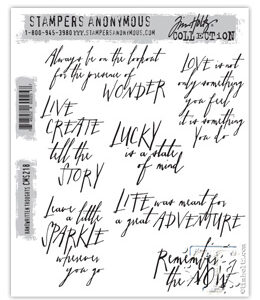 STAMPERS ANONYMOUS
1-800-945-3980 WWW.STAMPERSANONYMOUS.COM
Tim Holtz
COLLECTION
Always be on the lookout
for the presence of
WONDER
LOVE is not
only something
you feel
it is something
you do
LIVE
CREATE
tell the
STORY
LUCKY
is a state
of mind
Leave
a little
SPARKLE
wherever
you go
LIFE was meant for
a great ADVENTURE
Remember
the NOW
HANDWRITTEN THOUGHTS CMS218